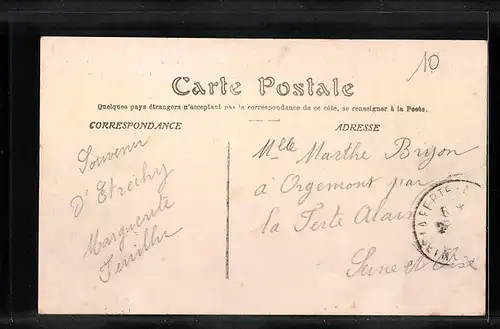 10
Carte Postale
Quelques pays étrangers n'acceptant pas la correspondance de ce côté, se renseigner à la Poste.
CORRESPONDANCE
ADRESSE
Souvenir
D'Etréchy
Marguerite
Mlle Marthe Bryon
à Orgemont par
la Ferté Alais
Seine et Oise
LA FERTE